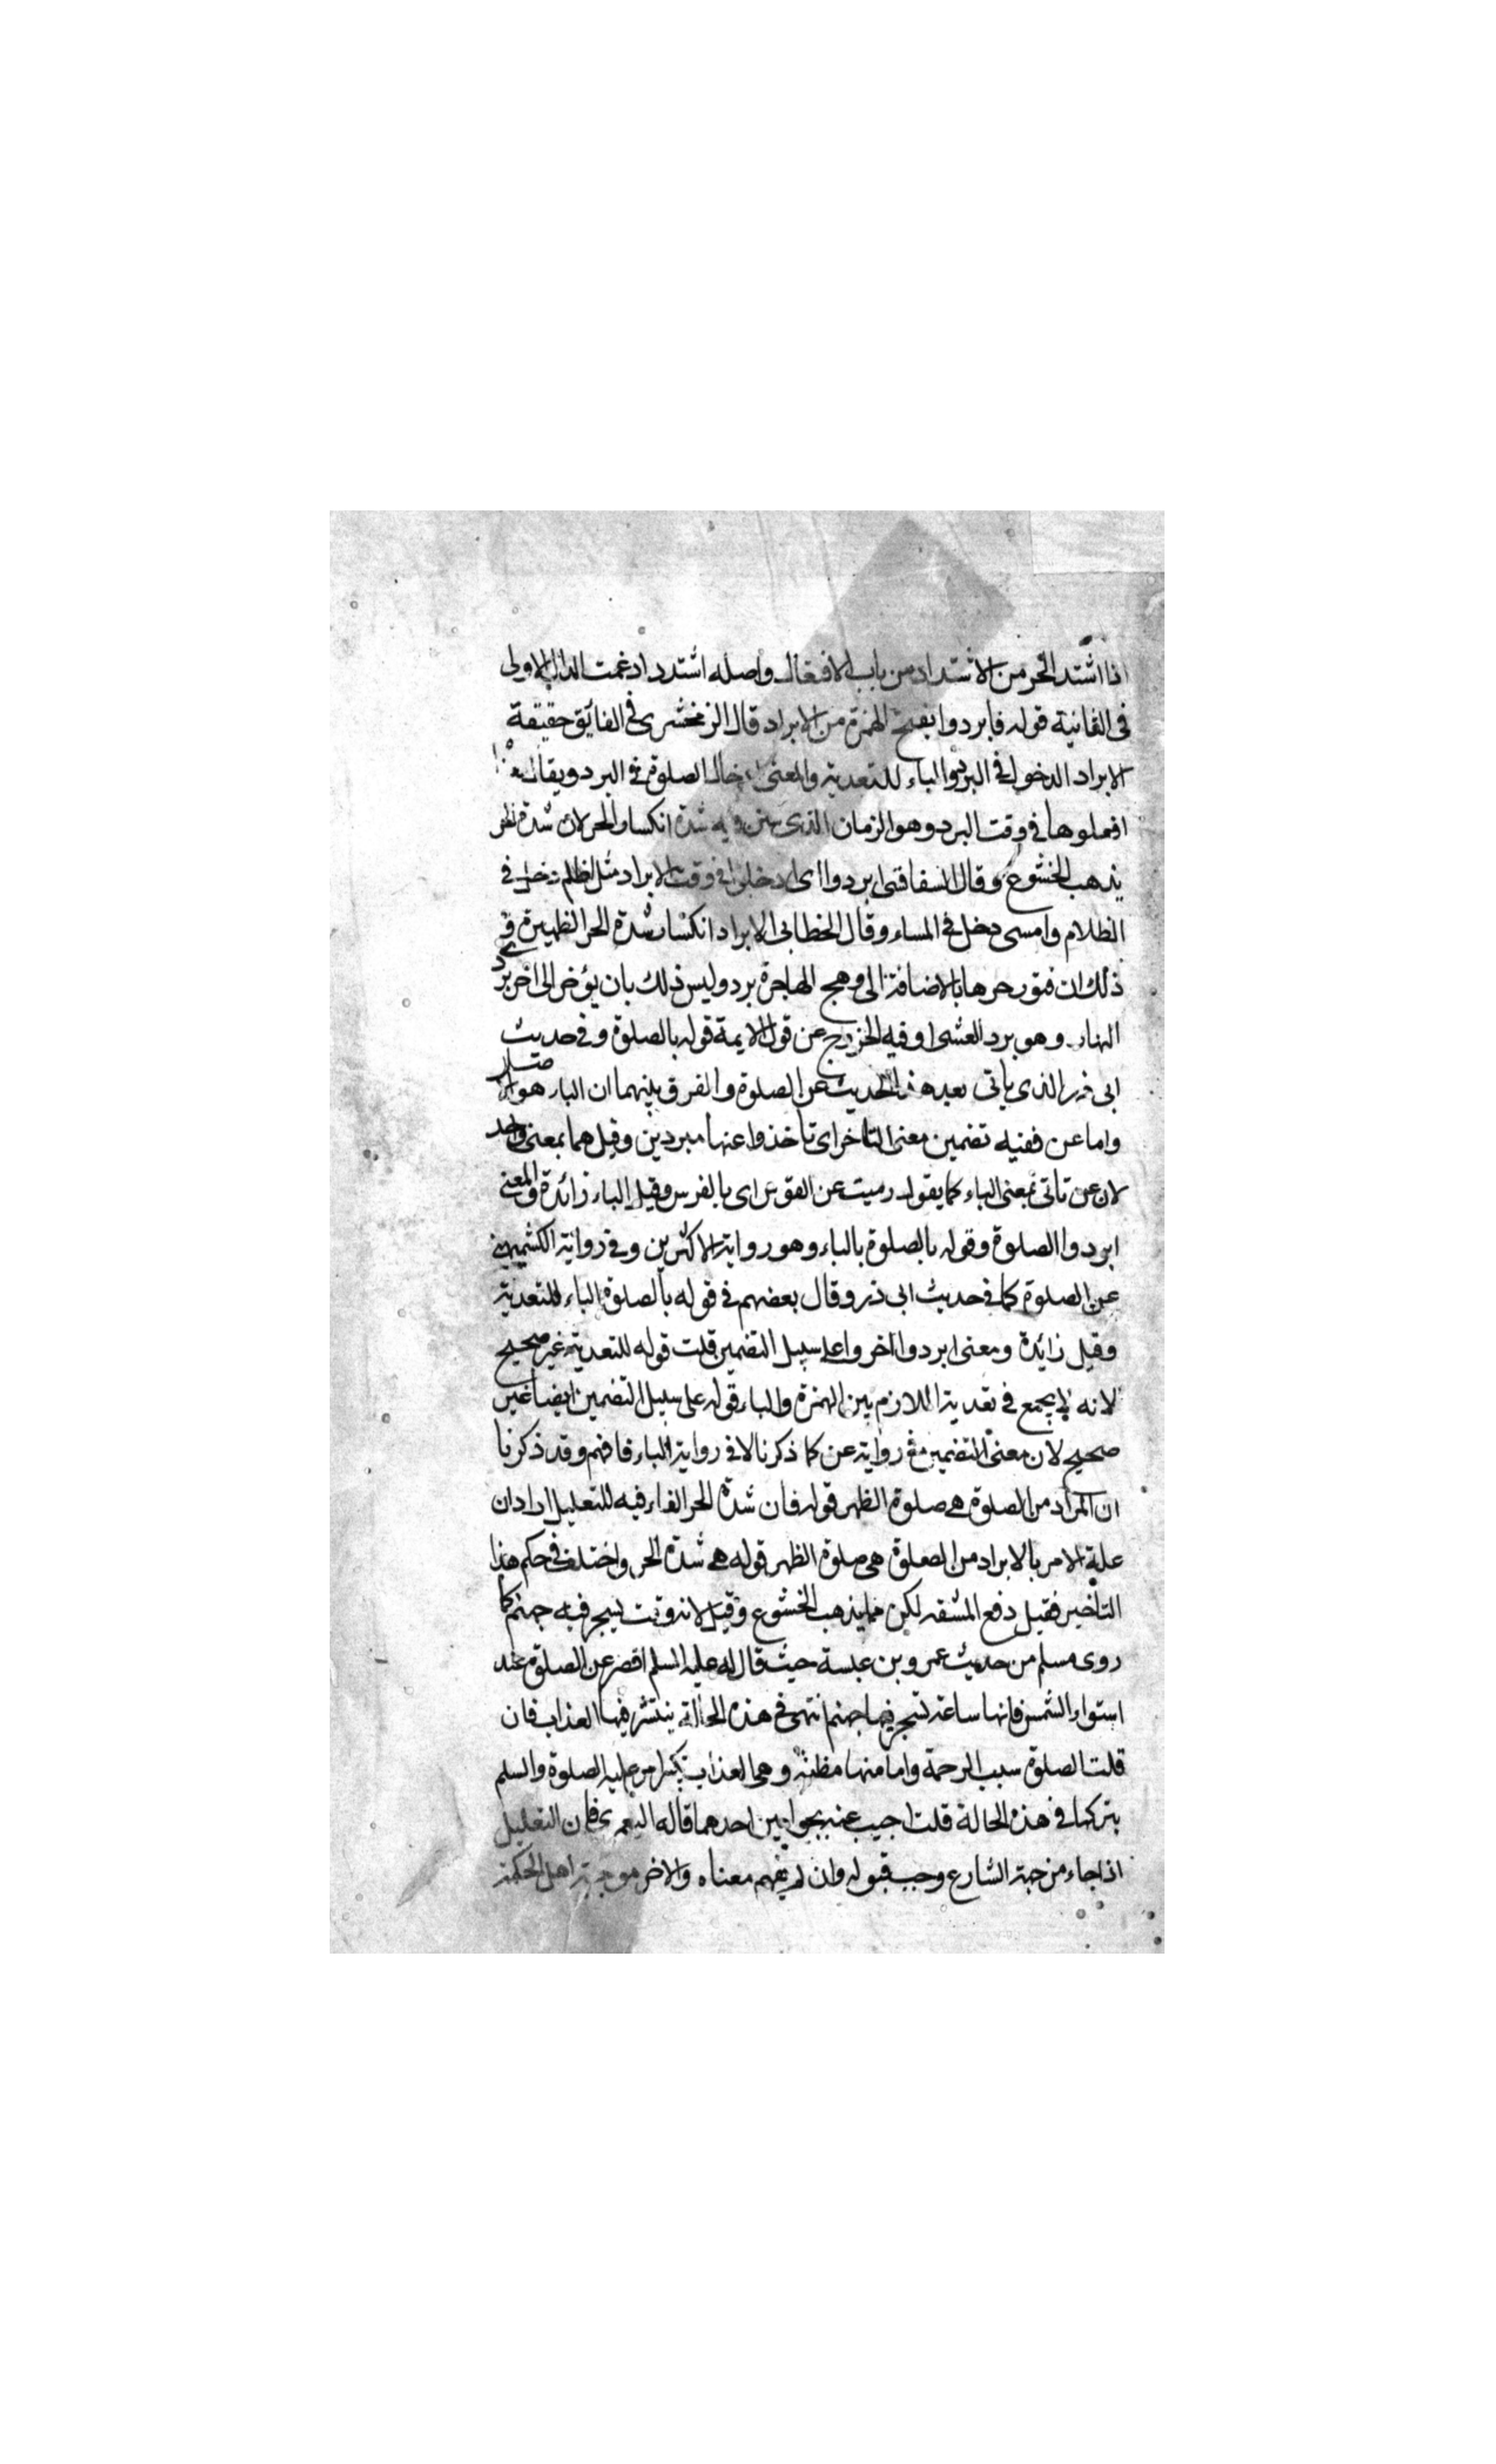 اذا اشتد الحر من الاشتداد من باب الافتعال واصله اشتدد ادغمت الدال الاولى
فى الثانية قوله فابردوا بفتح الهمزة من الابراد قال الزمخشرى فى الفائق حقيقة
الابراد الدخول فى البرد والباء للتعدية والمعنى ادخال الصلوة فى البرد ويقال معناه
افعلوها فى وقت البرد وهو الزمان الذى يتبين فيه شدة انكسار الحر لان شدة الحر
يذهب الخشوع وقال السفاقسى ابردوا اى ادخلوا فى وقت الابراد مثل اظلم دخل فى
الظلام وامسى دخل فى المساء وقال الخطابى الابراد انكسار شدة الحر الظهيرة وفى
ذلك ان فتور حرها بالاضافة الى وهج الهاجرة برد وليس ذلك بان يؤخر الى اخر برد
النهار وهو برد العشى اوفيه الخروج عن قول الايمة قوله بالصلوة وفى حديث
ابى ذر الذى ياتى بعد هذا الحديث عن الصلوة والفرق بينهما ان الباء هو الاصل
واما عن ففيه تضمين معنى التاخر اى تاخذوا عنها مبردين وقيل هما بمعنى واحد
لان عن تاتى بمعنى الباء كما يقول رميت عن القوس اى بالفرس وقيل الباء زائدة والمعنى
ابردوا الصلوة وقوله بالصلوة بالباء وهو رواية الاكثرين وفى رواية الكشميهنى
عن الصلوة كما فى حديث ابى ذر وقال بعضهم فى قوله بالصلوة الباء للتعدية
وقيل زائدة ومعنى ابردوا اخروا على سبيل التضمين قلت قوله للتعدية غير صحيح
لانه لا يجمع فى تعدية اللازم بين الهمزة والباء قوله على سبيل التضمين ايضا غير
صحيح لان معنى التضمين فى رواية عن كما ذكرنا لا فى رواية الباء فافهم وقد ذكرنا
ان المراد من الصلوة هى صلوة الظهر قوله فان شدة الحر الفاء فيه للتعليل اراد ان
علة الامر بالابراد من الصلوة هى صلوة الظهر قوله هى شدة الحر واختلف فى حكم هذا
التاخير فقيل دفع المشقه لكن مما يذهب الخشوع وقيل لانه وقت تسجر فيه جهنم كما
روى مسلم من حديث عمرو بن عبسة حيث قال له عليه السلم اقصر عن الصلوة عند
استواء الشمس فانها ساعة تسجر فيها جهنم انتهى فى هذه الحالة ينتشر فيها العذاب فان
قلت الصلوة سبب الرحمة واما منها مظنة وهى العذاب امر عليه الصلوة والسلم
بتركها فى هذه الحالة قلت اجيب عنه بجوابين احدهما قاله اليعمرى فان التعليل
اذا جاء من جهة الشارع وجب قبوله وان لم يفهم معناه والاخر من جهة اهل الحكمة